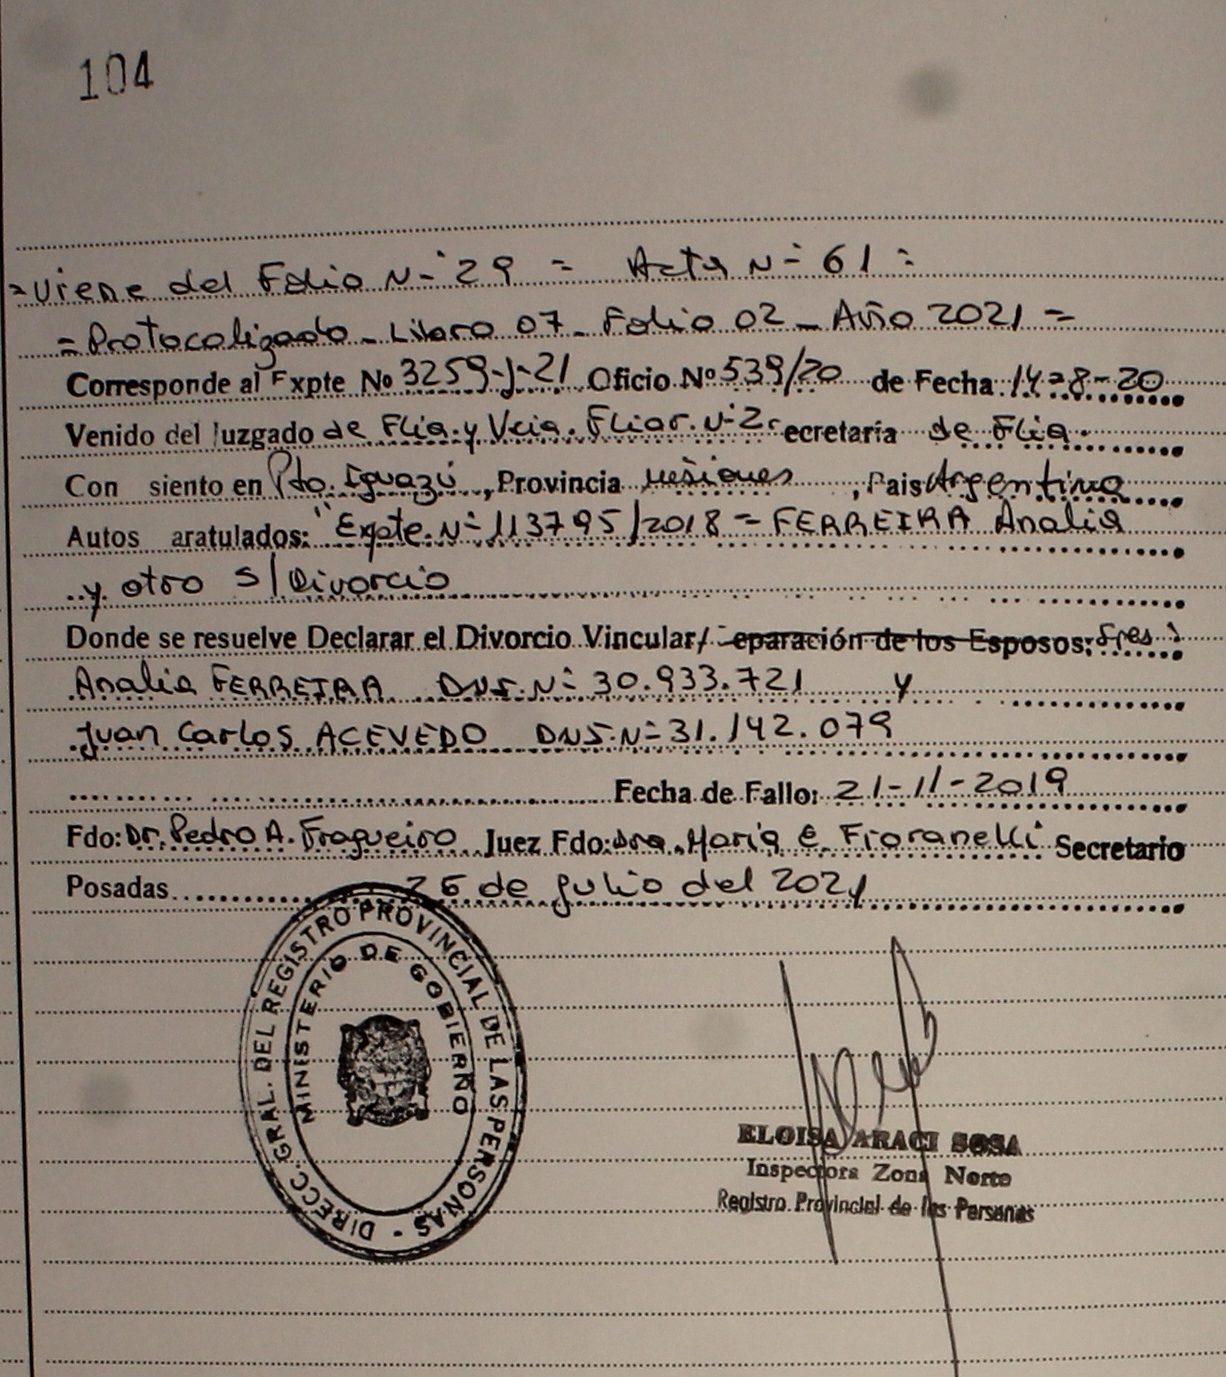 104
=Viene del Folio N-º 29 = Acta N-º 61 =
=Protocolizado - Libro 07 - Folio 02 - Año 2021 =
Corresponde al Expte Nº 3259-J-21 Oficio Nº 539/20 de Fecha 14-8-20
Venido del Juzgado de Flia. y Vcia. Fliar. N-º 2. ecretaría de Flia.
Con siento en Pto. Iguazú, Provincia Misiones, Pais Argentina
Autos aratulados: "Expte. N-º 113795/2018 = FERREIRA Analia
y otro s/Divorcio
Donde se resuelve Declarar el Divorcio Vincular/ eparación de los Esposos: Sres:
Analia FERREIRA DNI. N-º 30.933.721 y
Juan Carlos ACEVEDO DNI. N-º 31.142.079
Fecha de Fallo: 21-11-2019
Fdo: Dr. Pedro A. Fragueiro Juez Fdo: Dra. Maria E. Fioranelli Secretario
Posadas 26 de julio del 2021
DIRECC. GRAL. DEL REGISTRO PROVINCIAL DE LAS PERSONAS -
MINISTERIO DE GOBIERNO
ELOISA ARACI SOSA
Inspectora Zona Norte
Registro Provincial de las Personas